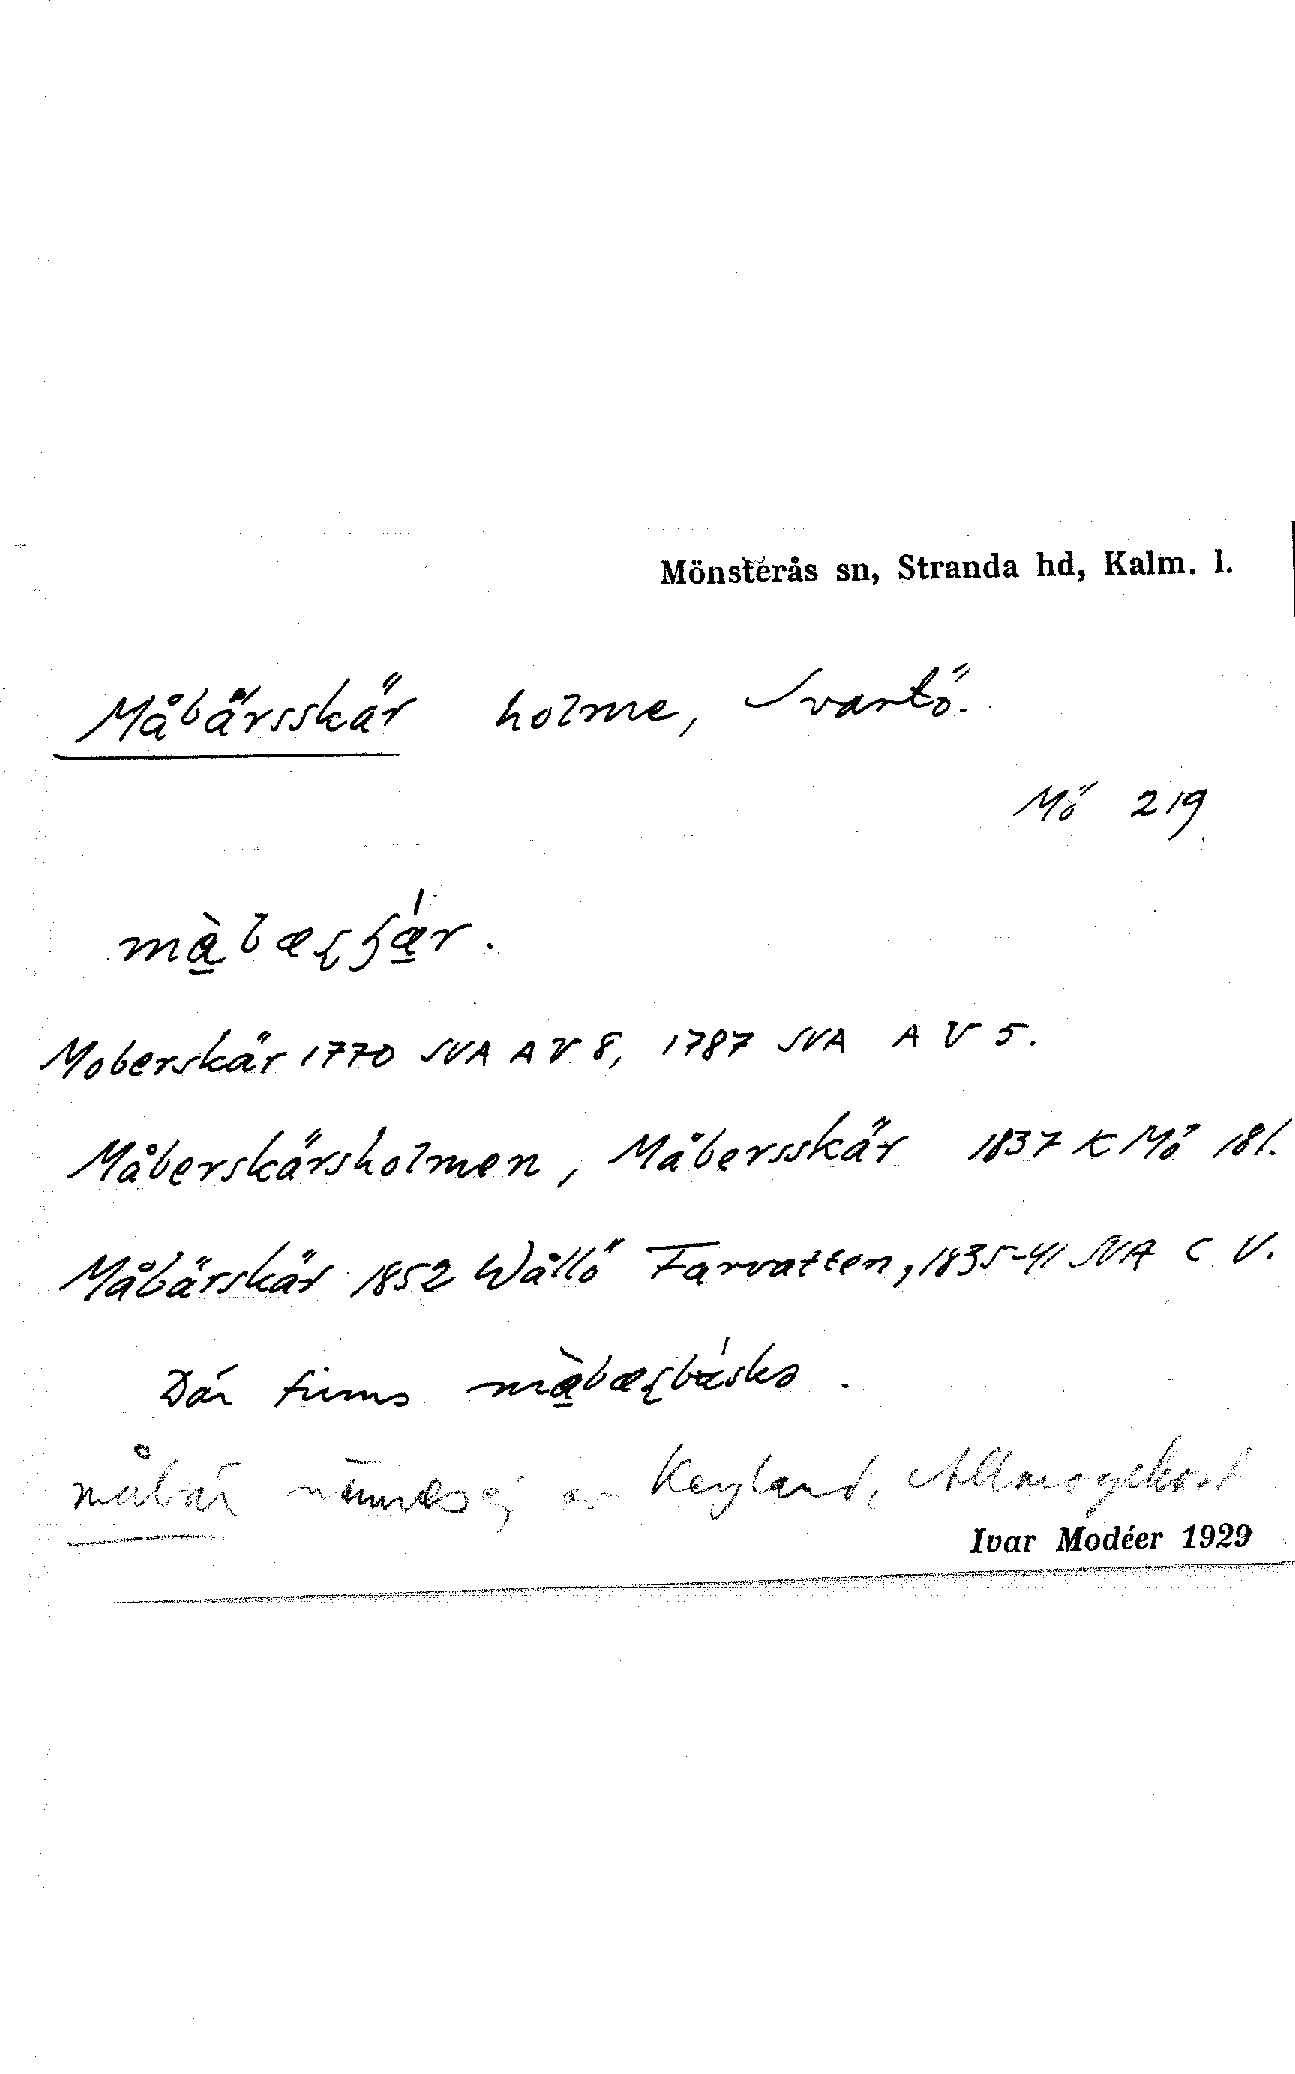 Mönsterås sn, Stranda hd, Kalm. l.
Måbärsskär holme, Svartö.
Mö 219
Moberskär 1770 SVA A V 8, 1787 SVA A V 5.
Måberskärsholmen, Måbersskär 1837 K Mö 181.
Måbärskär 1852 Wållö Farvatten, 1835-41 SVA C V.
Där finns
måbär nämnes ej av Keyland, Allmogekost
Ivar Modéer 1929